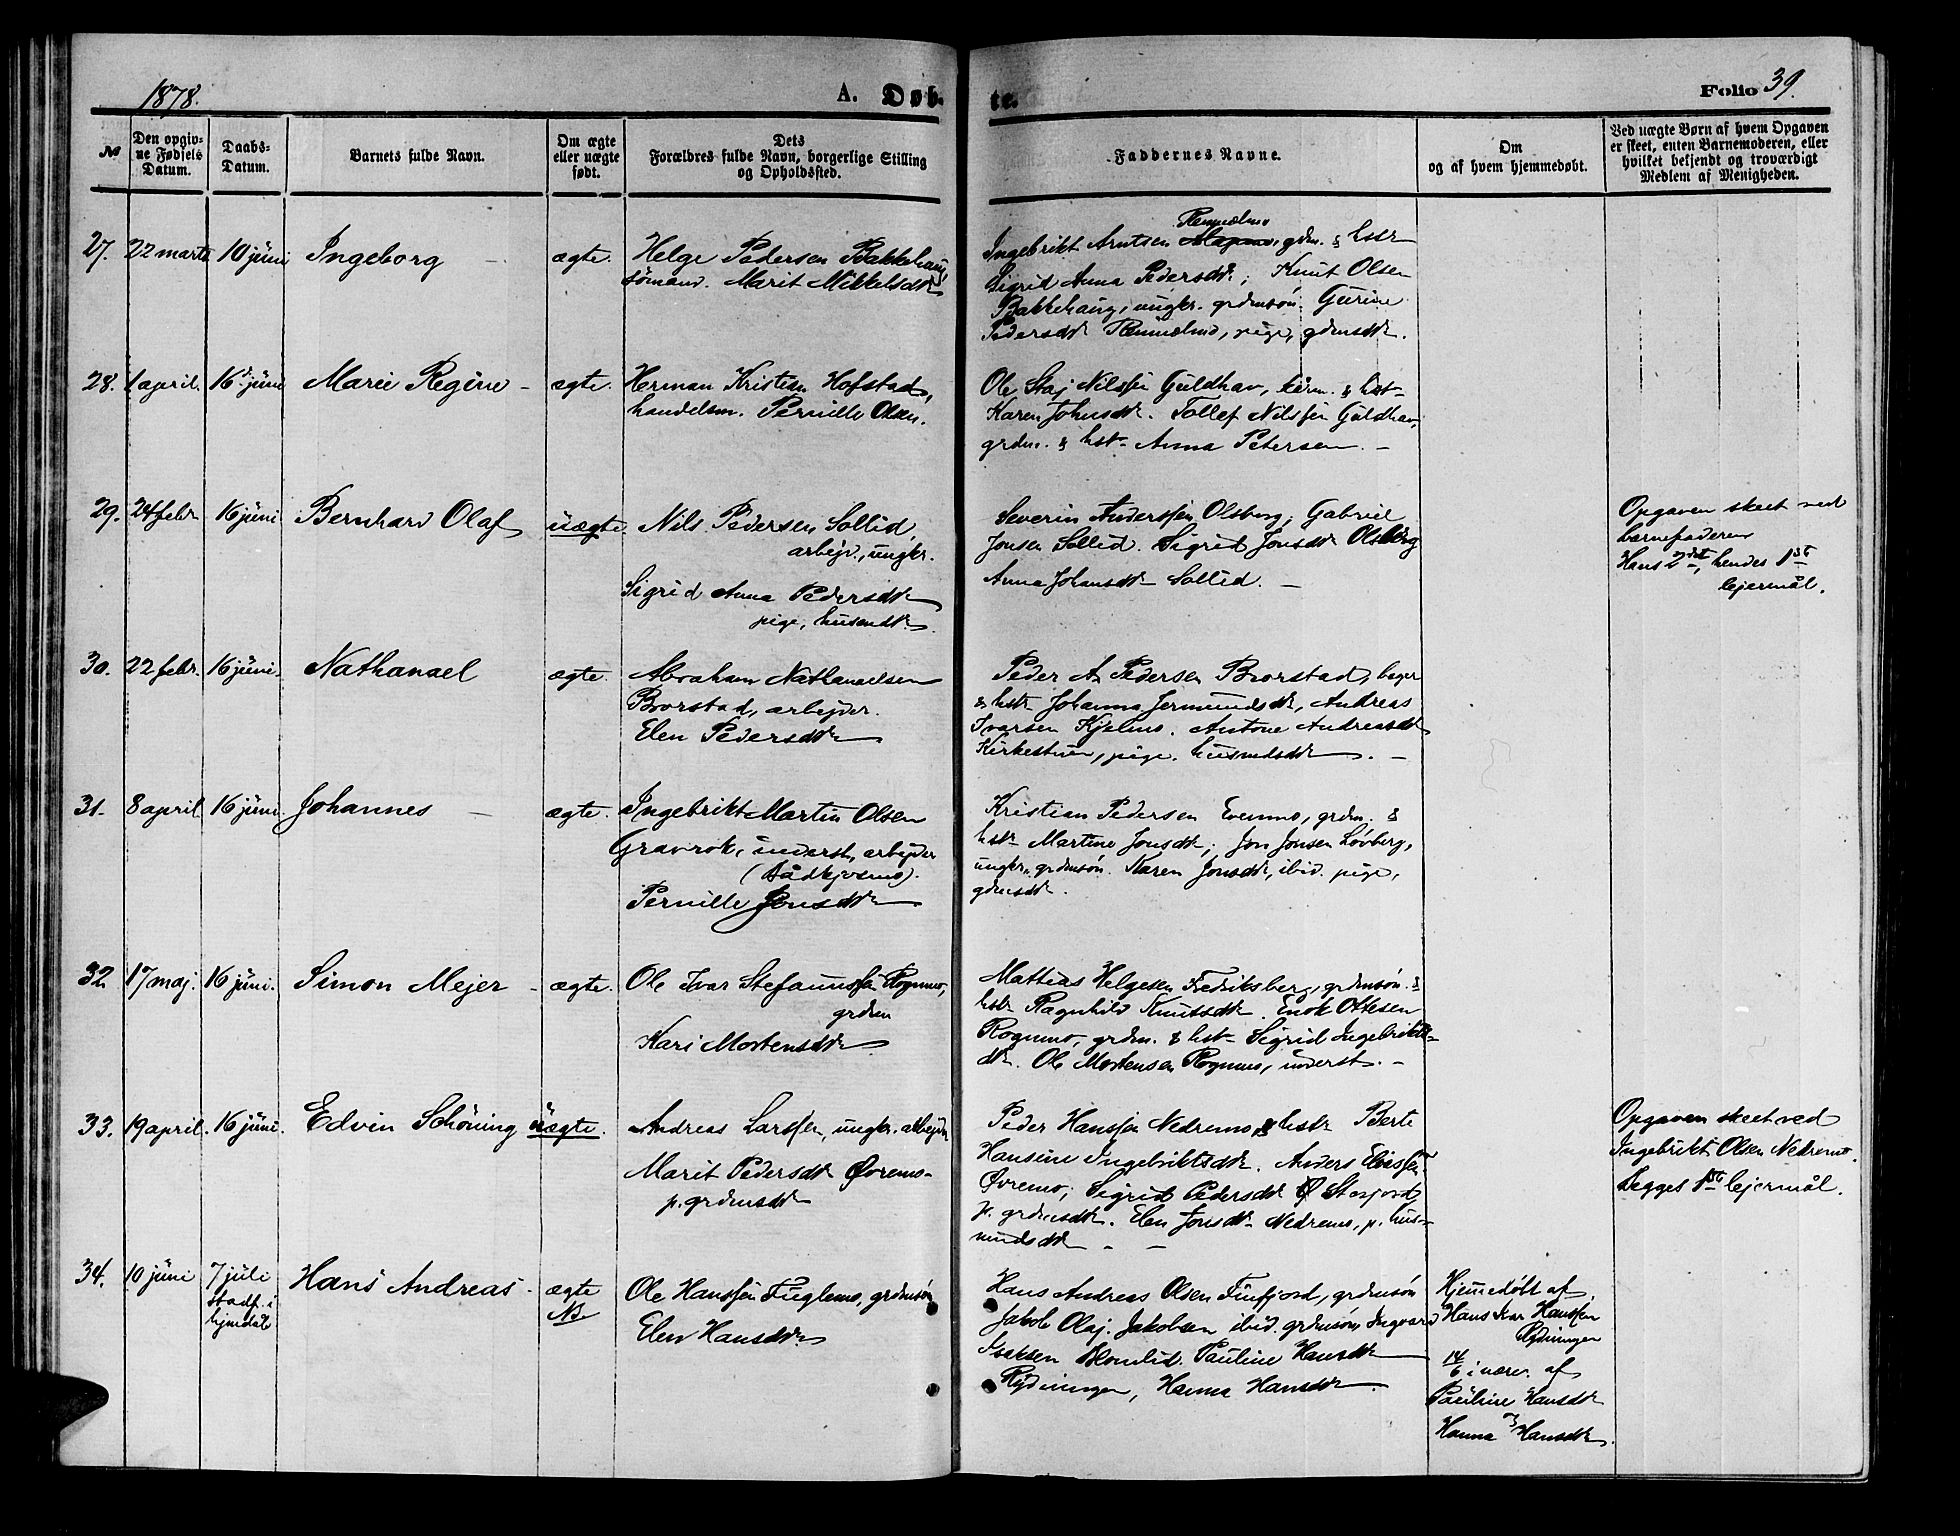 1878.
A. Døb-
te.
Folio 39.
No
Den opgiv-
ne Fødsels
Datum.
Daabs-
Datum.
Barnets fulde Navn.
Om ægte
eller uægte
født.
Dets
Forældres fulde Navn, borgerlige Stilling
og Opholdssted.
Faddernes Navne.
Om
og af hvem hjemmedøbt.
Ved uægte Børn af hvem Opgaven
er skeet, enten Barnemoderen, eller
hvilket bekjendt og troværdigt
Medlem af Menigheden.
27. 22 marts 10 juni Ingeborg - ægte.
Helge Pedersen Bakkehaug,
sømand. Marit Mikkelsdtr
Ingebrikt Arntsen grdm. & hstr
Sigrid Anna Pedersdtr; Knut Olsen
Bakkehaug, ungkr. grdmsøn. Gurine
Pedersdtr pige, gdmsdtr.
28. 1 april. 16d juni Marie Regine - ægte.
Herman Kristian Hofstad,
handelsm. Pernille Olsen.
Ole Staj Nilssen Guldhav, & hst-
Karen Johnsdtr. Tollef Nilssen Guldhav,
grdm. & hst- Anna Petersen. -
29. 24 febr 16 juni Bernhard Olaf uægte.
Nils Pedersen Sollid,
arbejd., ungkr.
Sigrid Anna Pedersdtr
pige, husmdtr.
Severin Anderssen Olsborg; Gabriel
Jonsen Sollid. Sigrid Jonsdtr Olsborg
Anna Johansdtr Sollid. -
Opgaven skeet ved
barnefaderen
Hans 2det, hendes 1st
lejermål.
30. 22 febr. 16 juni. Nathanael ægte.
Abraham Nathanaelsen
Brorstad, arbejder.
Elen Pedersdtr
Peder A Pedersen Brorstad,
& hstr Johanna Jermundsdtr, Andreas
Ivarsen Kjelmo. Antone Andreasdtr
Kirkestuen, pige. husmdsdtr. -
31. 8 april 16 juni Johannes - ægte.
Ingebrikt Martin Olsen
Gravrok, inderst, arbejder
Pernille Jonsdtr
Kristian Pedersen Evenmo, grdm. &
hstr Martine Jonsdtr; Jon Jonsen Løvberg,
ungkr. grdmsøn. Karen Jonsdtr, ibid. pige,
gdmsdtr.
32 17 maj. 16 juni. Simon Mejer - ægte.
Ole Ivar Stefanussen Rognmo,
grdm
Kari Mortensdtr
Mattias Helgesen Fredriksberg, grdmsøn. &
hstr Ragnhild Knutsdtr. Enok Ottesen
Rognmo, grdm. & hst- Sigrid Ingebrikts-
dtr. Ole Mortensen Rognmo, inderst. -
33. 19 april. 16 juni. Edvin Schöning uægte.
Andreas Larssen, ungkr. arbejder
Marit Pedersdtr Øvremo-
p. grdmsdtr
Peder Hanssen Nedremo & hstr Berte
Hansine Ingebriktsdtr. Anders Eliassen
Øvremo; Sigrid Pedersdtr Storfjord
p. grdmsdtr. Elen Jonsdtr Nedremo, p. hus-
mndsdtr - -
Opgaven skeet ved
Ingebrikt Olsen Nedremo.
Begges 1st lejermål.
34. 10 juni 7 juli Hans Andreas - ægte
stadf. i
hjmdåb
NB.
Ole Hanssen Fuglemo, grdmsøn
Elen Hansdtr.
Hans Andreas Olsen Finfjord, grdmsøn
Jakob Olaj. Jakobsen ibid. grdmsøn, Ingvard
Isaksen Blomlid. Pauline Hansdtr
Rydningen, Hanna Hansdtr.
Hjemmedøbt af
Hans Ivar Hanssen
Rydningen
14/6 i nærv. af
Pauline Hansdtr
Hanna Hansdtr.